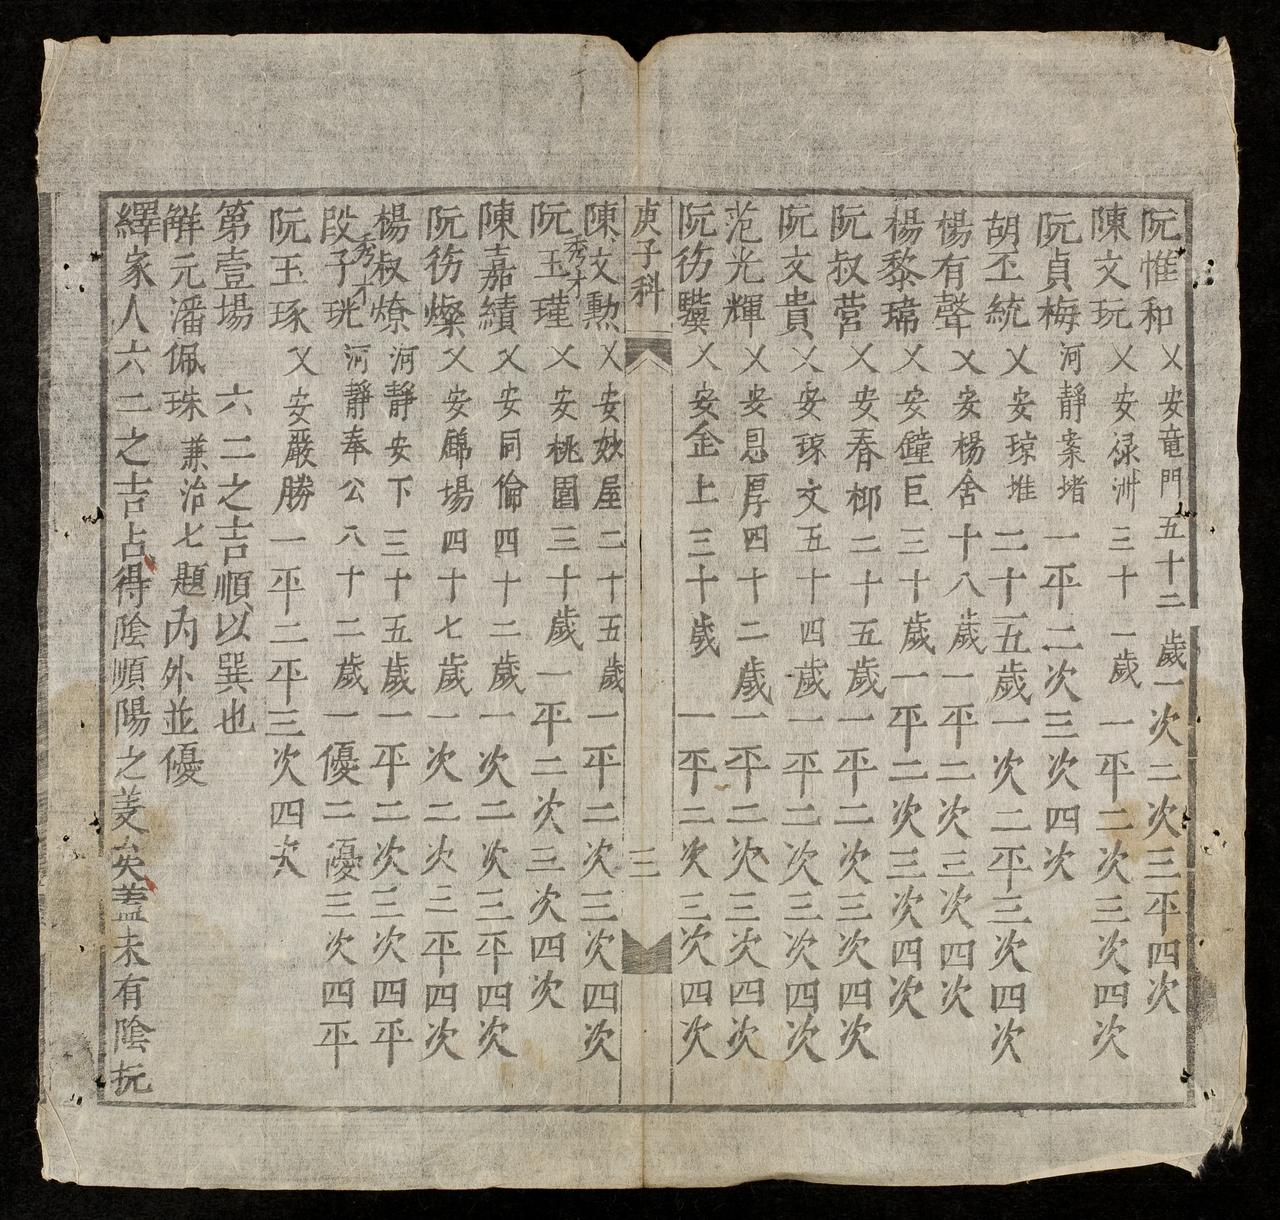 阮惟和乂安竜門五十二歲一次二次三平四次
陳文玩乂安禄洲三十一歲一平二次三次四次
阮貞梅河靜案堵一平二次三次四次
胡丕統乂安琼堆二十五歲一次二平三次四次
楊有聲乂安楊舍十八歲一平二次三次四次
楊黎㻮乂安鐘巨三十歲一平二次三次四次
阮叔营乂安春柳二十五歲一平二次三次四次
阮文貴乂安琼文五十四歲一平二次三次四次
范光輝乂安恩厚四十二歲一平二次三次四次
阮仿驥乂安金上三十歲一平二次三次四次
庚子科
三
陳文勲乂安妙屋二十五歲一平二次三次四次
阮玉瑾秀才乂安桃園三十歲一平二次三次四次
陳嘉績乂安同倫四十二歲一次二次三平四次
阮仿燦乂安錦場四十七歲一次二次三平四次
楊叔燎河靜安下三十五歲一平二次三次四平
段子珖秀才河靜奉公八十二歲一優二優三次四平
阮玉琢乂安嚴勝一平二平三次四次
第壹場 六二之吉順以巽也
解元潘佩珠兼治七題內外並優
繹家人六二之吉占得陰順陽之羙矣蓋未有陰抗